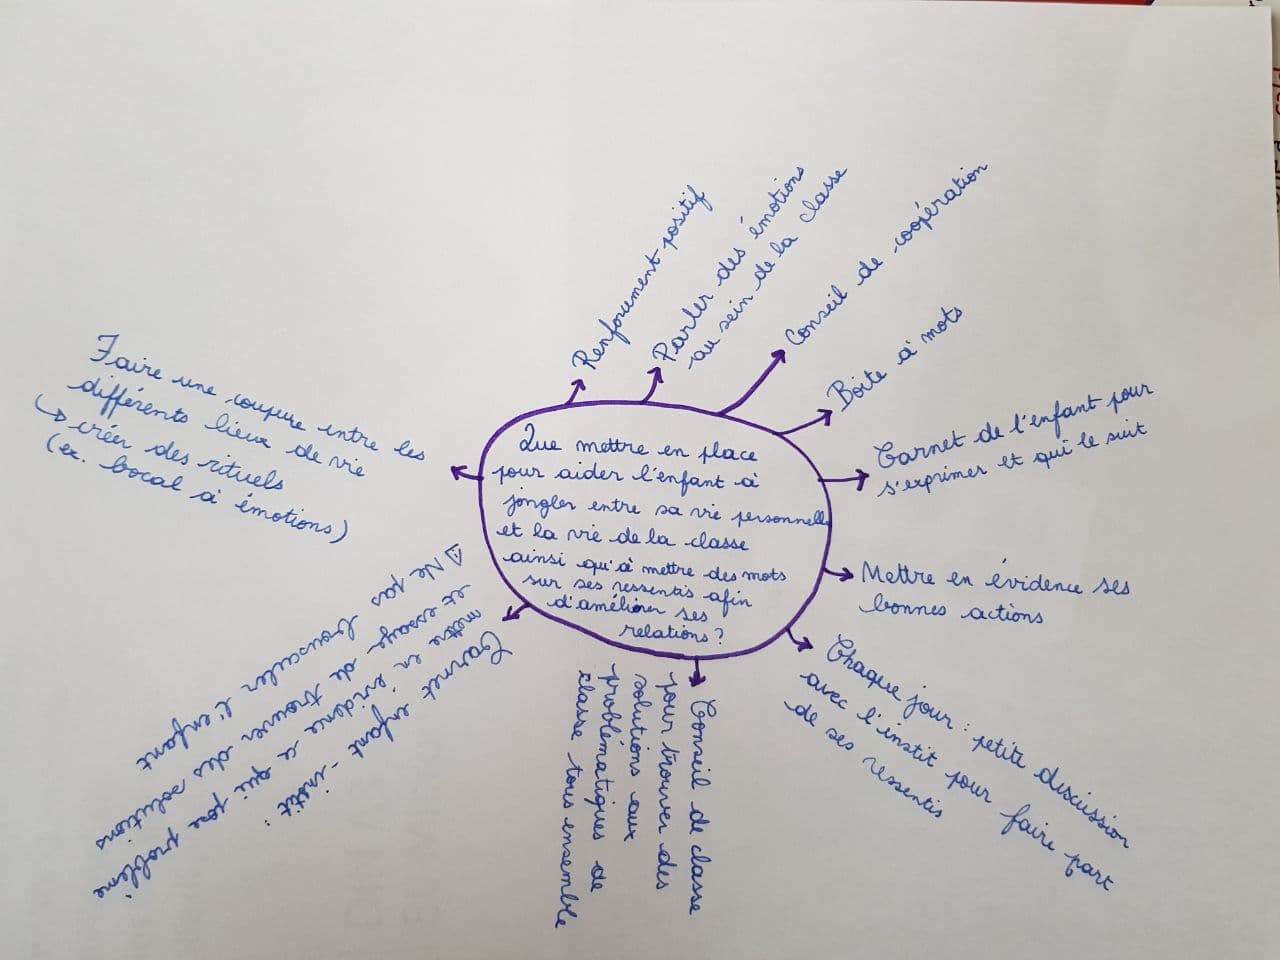 Que mettre en place
pour aider l'enfant à
jongler entre sa vie personnelle
et la vie de la classe
ainsi qu'à mettre des mots
sur ses ressentis afin
d'améliorer ses
relations ?
Renforcement positif
Parler des émotions
au sein de la classe
Conseil de coopération
Boîte à mots
Carnet de l'enfant pour
s'exprimer et qui le suit
Mettre en évidence ses
bonnes actions
Chaque jour : petite discussion
avec l'instit pour faire part
de ses ressentis
Conseil de classe
pour trouver des
solutions aux
problématiques de
classe tous ensemble
Carnet enfant - instit :
mettre en évidence ce qui pose problème
et essaye de trouver des solutions
⚠ Ne pas brusquer l'enfant
Faire une coupure entre les
différents lieux de vie
↳ créer des rituels
(ex. bocal à émotions)